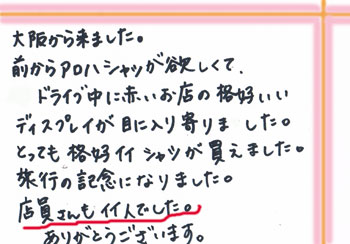 大阪から来ました。
前からアロハシャツが欲しくて、
ドライブ中に赤いお店の格好いい
ディスプレイが目に入り寄りました。
とっても格好イイシャツが買えました。
旅行の記念になりました。
店員さんもイイ人でした。
ありがとうございます。